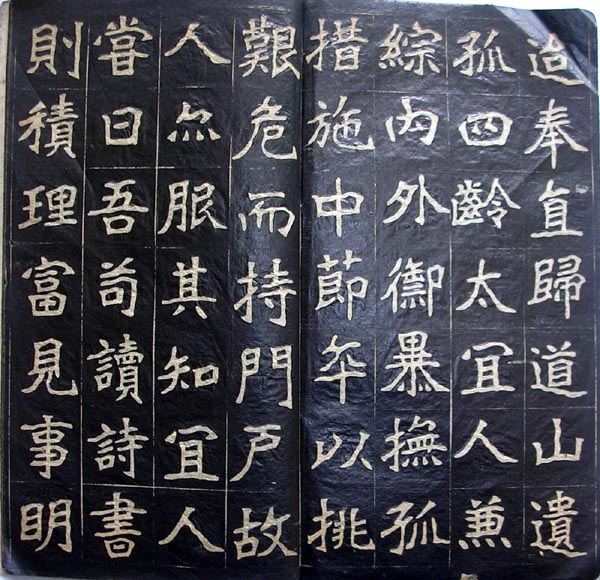 迨奉直歸道山遺
孤四齡太宜人兼
綜内外御暴撫孤
措施中節卒以挑
艱危而持門戶故
人亦服其知宜人
嘗曰吾苟讀詩書
則積理富見事明